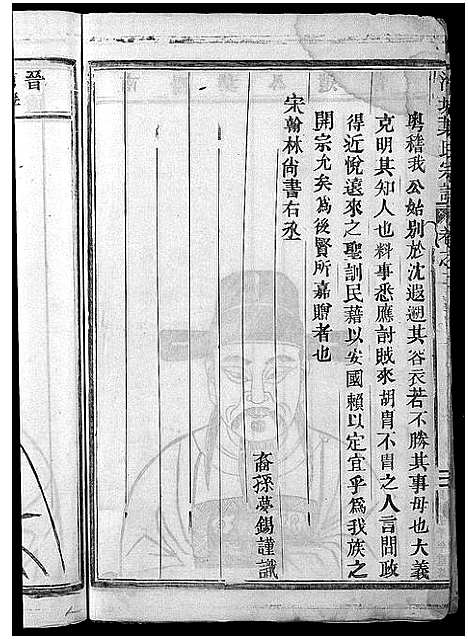 粵稽我公始別於沈遐遡其容衣若不勝其事母也大義
克明其知人也料事悉應討賊來胡胄不胄之人言問政
得近悅遠來之聖訓民藉以安國賴以定宜乎爲我族之
開宗尤矣爲後賢所嘉贈者也
宋翰林尚書右丞
裔孫夢錫謹識
晉